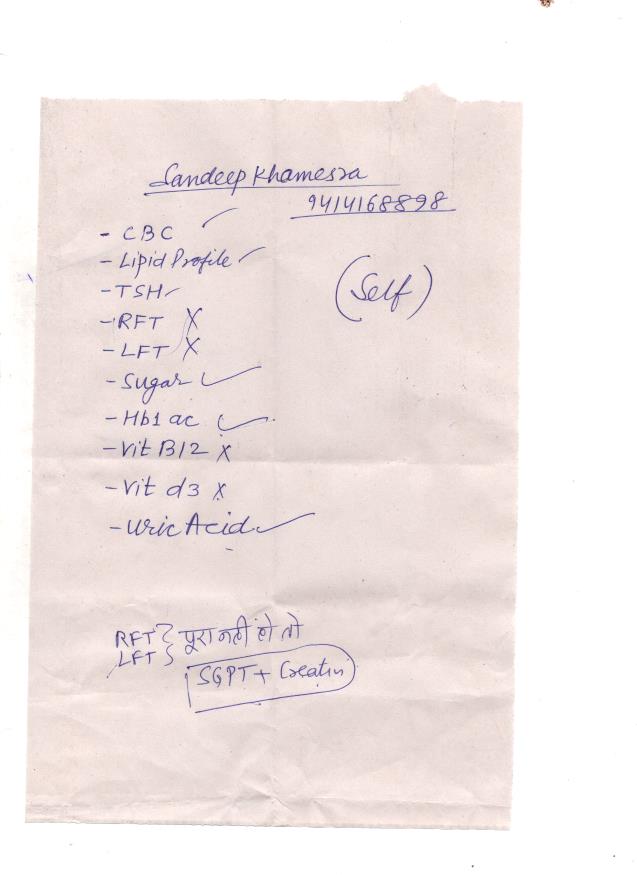 Sandeep Khamesra
9414168898
- CBC ✓
- Lipid Profile ✓
- TSH ✓
(Self)
- RFT X
- LFT X
- Sugar ✓
- Hb1 ac ✓
- Vit B12 x
- Vit d3 x
- Uric Acid ✓
RFT } पूरा नही हो तो
LFT }
SGPT + Creatin